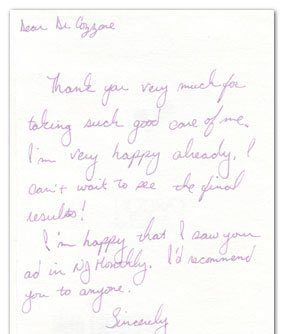 Dear Dr Cozzone
Thank you very much for
taking such good care of me.
I'm very happy already. I
can't wait to see the final
results!
I'm happy that I saw your
ad in NJ Monthly. I'd recommend
you to anyone.
Sincerely